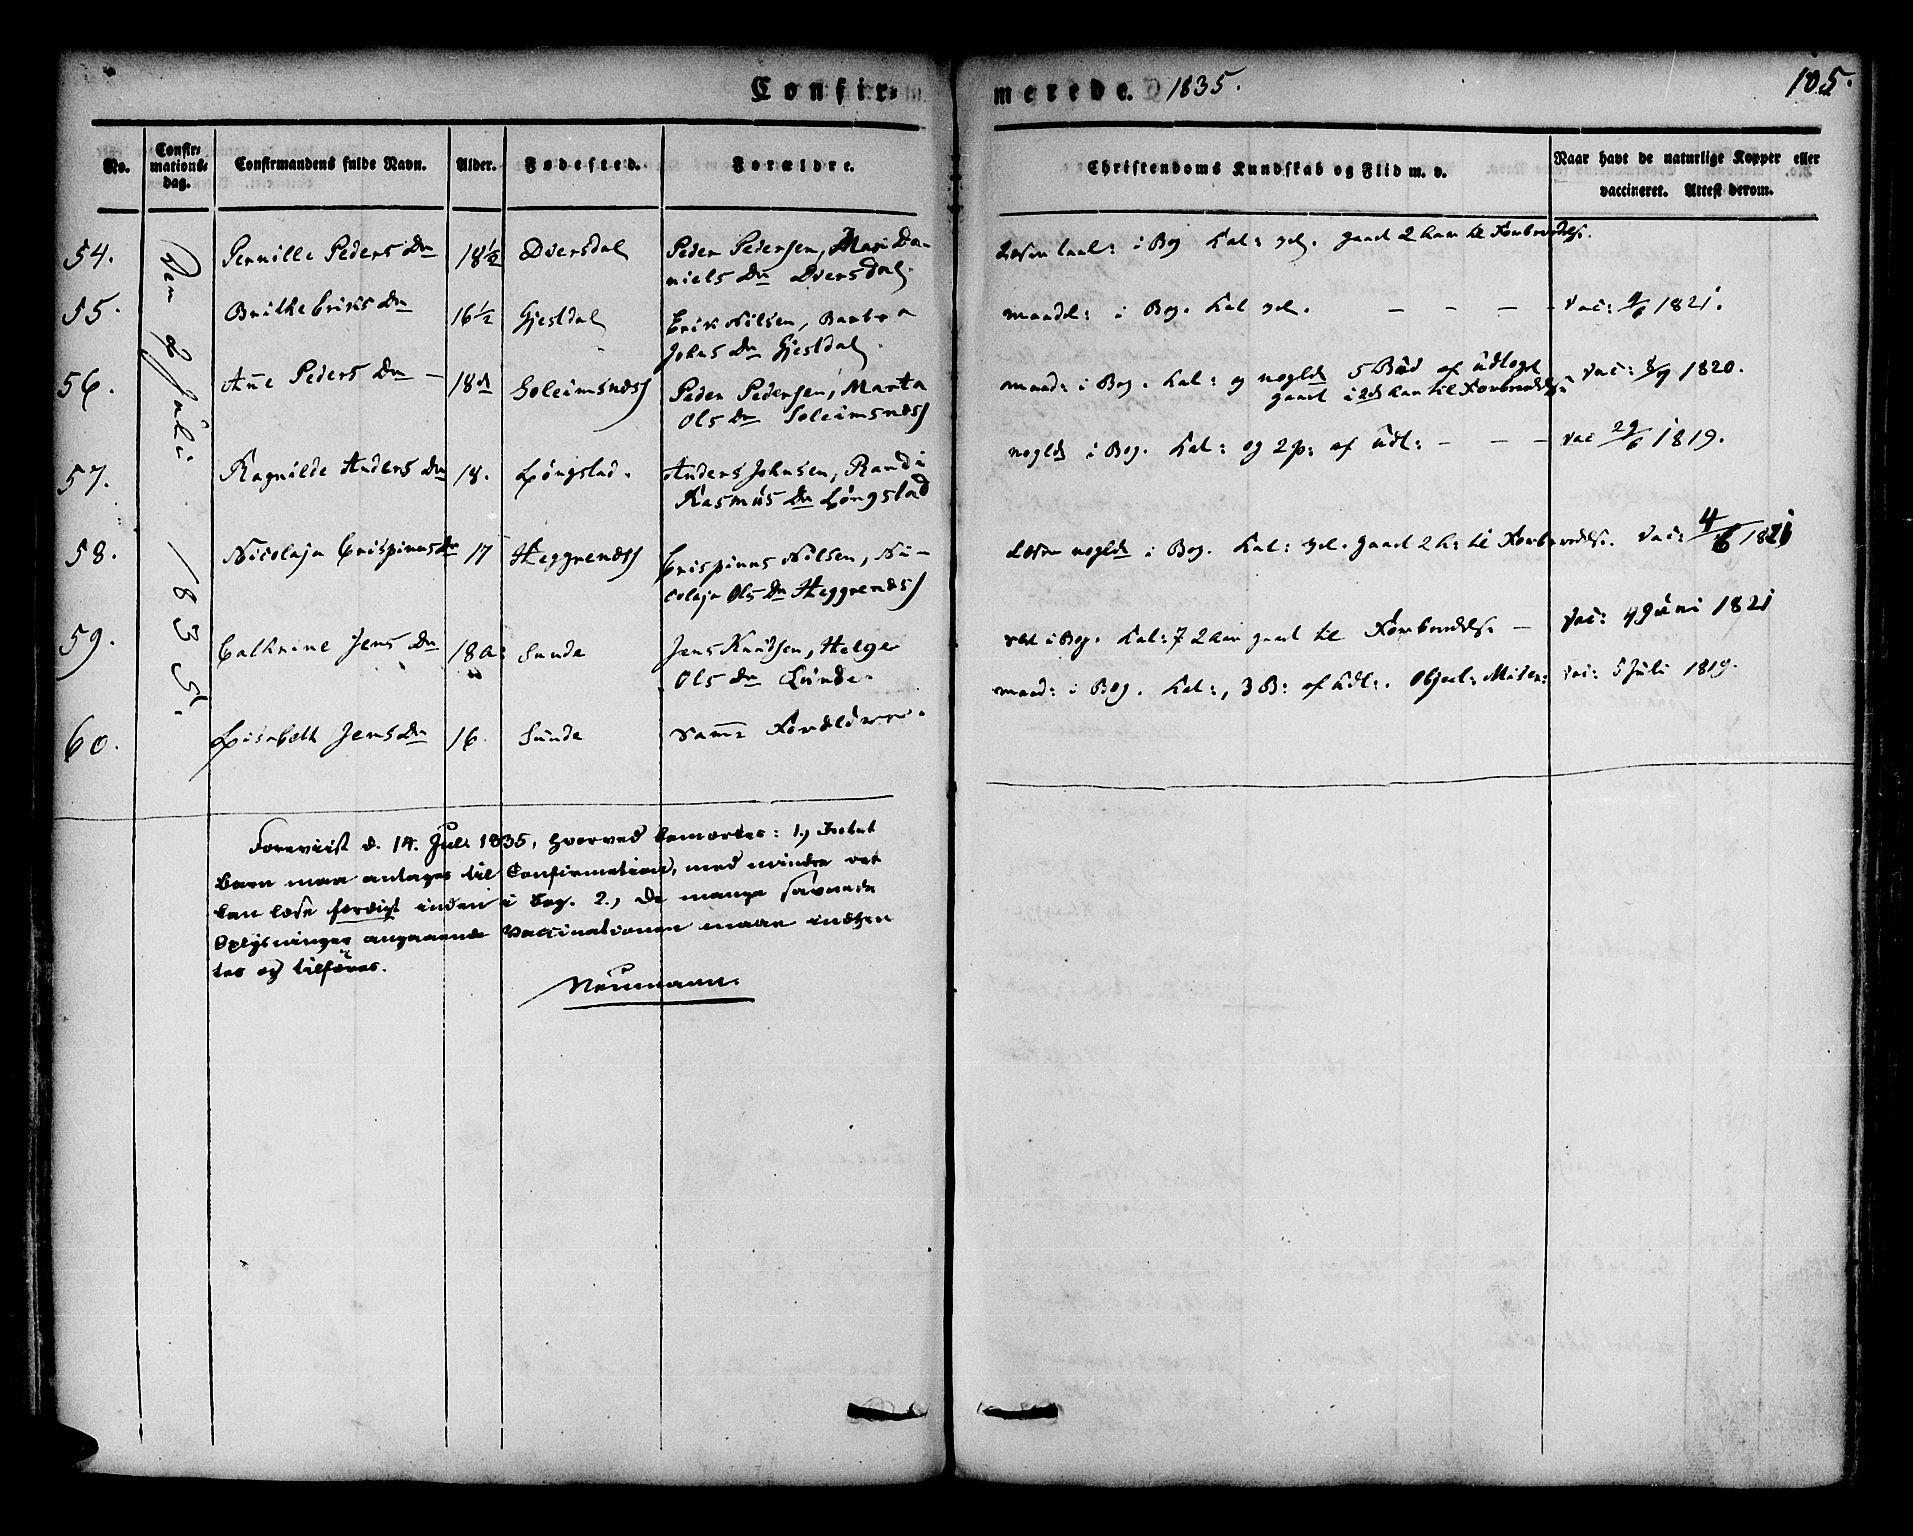 Confir- merede. 1835. 105.
No. Confir-mations-dag. Confirmandens fulde Navn. Alder. Fødested. Forældre. Christendoms Kundskab og Flid m. v. Naar havt de naturlige Kopper eller vaccineret. Attest derom.
Den 2 Juli 1835.
54. Pernille Peders Dr 18½ Dvergsdal Peder Pedersen, Mari Da-
niels Dr Dversdal.
Læser taal: i Bog Kat: gdl. gaaet 2 Aar til Forberedelse.
55. Brithe Eriks Dr 16½ Gjestdal Erik Nilsen, Barbra
Johns Dr Gjestdal.
maadel: i Bog. Kat gdl. - - - - vac: 4/6 1821.
56. Ane Peders Dr - 18 Soleimsnæss Peder Pedersen, Marta
Ols Dr Soleimsnæss
maad: i Bog. Kat: og nogle 5 Bud af Udtogt
gaaet i Aar til Forberedelse
vac: 8/9 1820.
57. Ragnilde Anders Dr 18. Løngstad. Anders Johnsen, Randi
Rasmus Dr Løngstad
nogle i Bog. Kat: og 2 p: af Udt: - - - vac 29/6 1819.
58. Nicolaja Crispinus Dr 17 Heggrenæss Crispinus Nilsen, Ni-
colaja Ols Dr Heggrenæss
Læser nogle i Bog. Kat: gdl. gaaet 2 A: til Forberedelse. vac: 4/6 1821
59. Cathrine Jens Dr 18 Sunde Jens Knudsen, Helge
Ols Dr Sunde.
ret i Bog. Kat: 2 Aar gaaet til Forberedelse - vac: 4 Juni 1821
60. Lisabeth Jens Dr 16. Sunde samme Forældre.
maad: i Bog. Kat:, 3 B: af Udt:. vac: 5 Juli 1819.
Foreviist d. 14. Juli 1835, hvorved bemærkes: 1.) Intet
Barn maa antages til Confirmation, med mindre det
kan læse færdigt inden i Bog. 2.) De mange savnede
Oplysninger angaaende Vaccinationen maae indhen-
tes og tilføres.
Neumann.